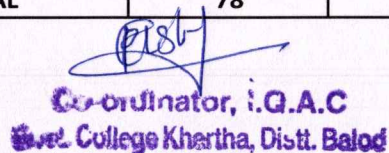 AL 78
Co-ordinator, I.Q.A.C
Govt. College Khertha, Distt. Balod